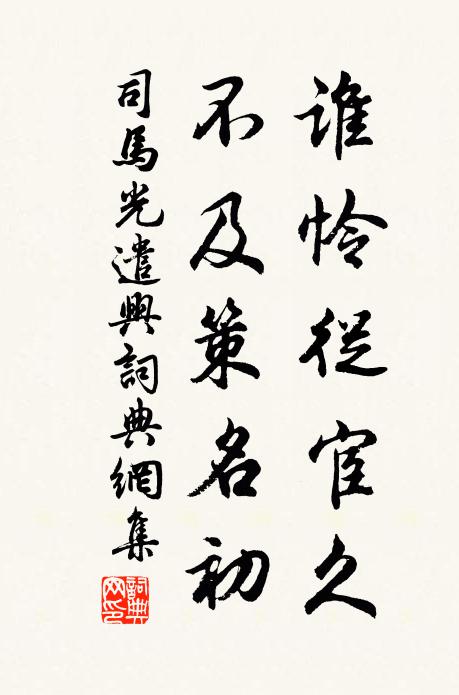 誰憐從宦久
不及策名初
司馬光遣興詞典網集
詞典網印